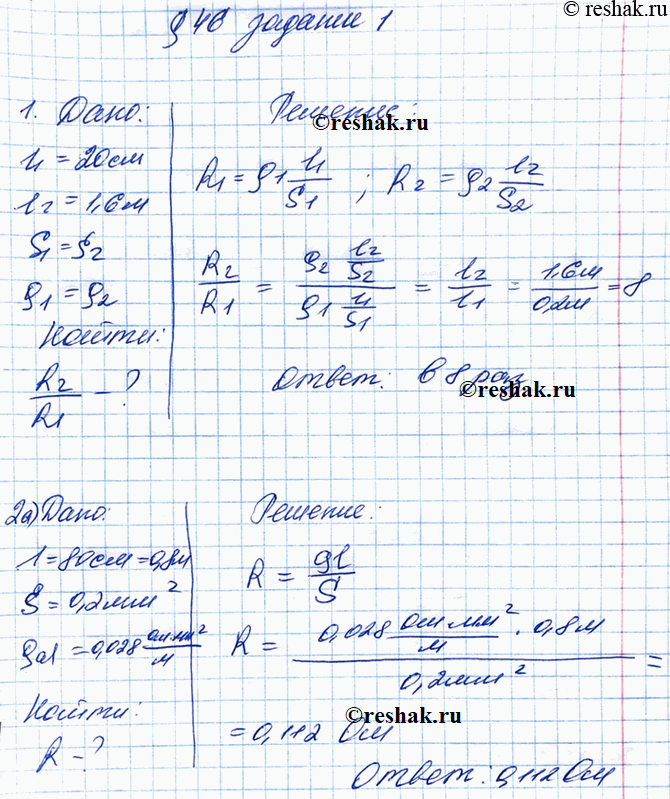 © reshak.ru
§ 46 задание 1
1. Дано:
l₁ = 20см
l₂ = 1,6м
S₁ = S₂
ρ₁ = ρ₂
Найти:
R₂/R₁ - ?
Решение:
©reshak.ru
R₁ = ρ₁ l₁/S₁ ; R₂ = ρ₂ l₂/S₂
R₂/R₁ = (ρ₂ l₂/S₂)/(ρ₁ l₁/S₁) = l₂/l₁ = 1,6м/0,2м = 8
Ответ: в 8 раз
©reshak.ru
2а) Дано:
l = 80см = 0,8м
S = 0,2мм²
ρal = 0,028 Ом мм²/м
Найти:
R - ?
Решение:
R = ρl/S
R = (0,028 Ом мм²/м · 0,8м)/0,2мм² =
= 0,112 Ом
©reshak.ru
Ответ: 0,112 Ом